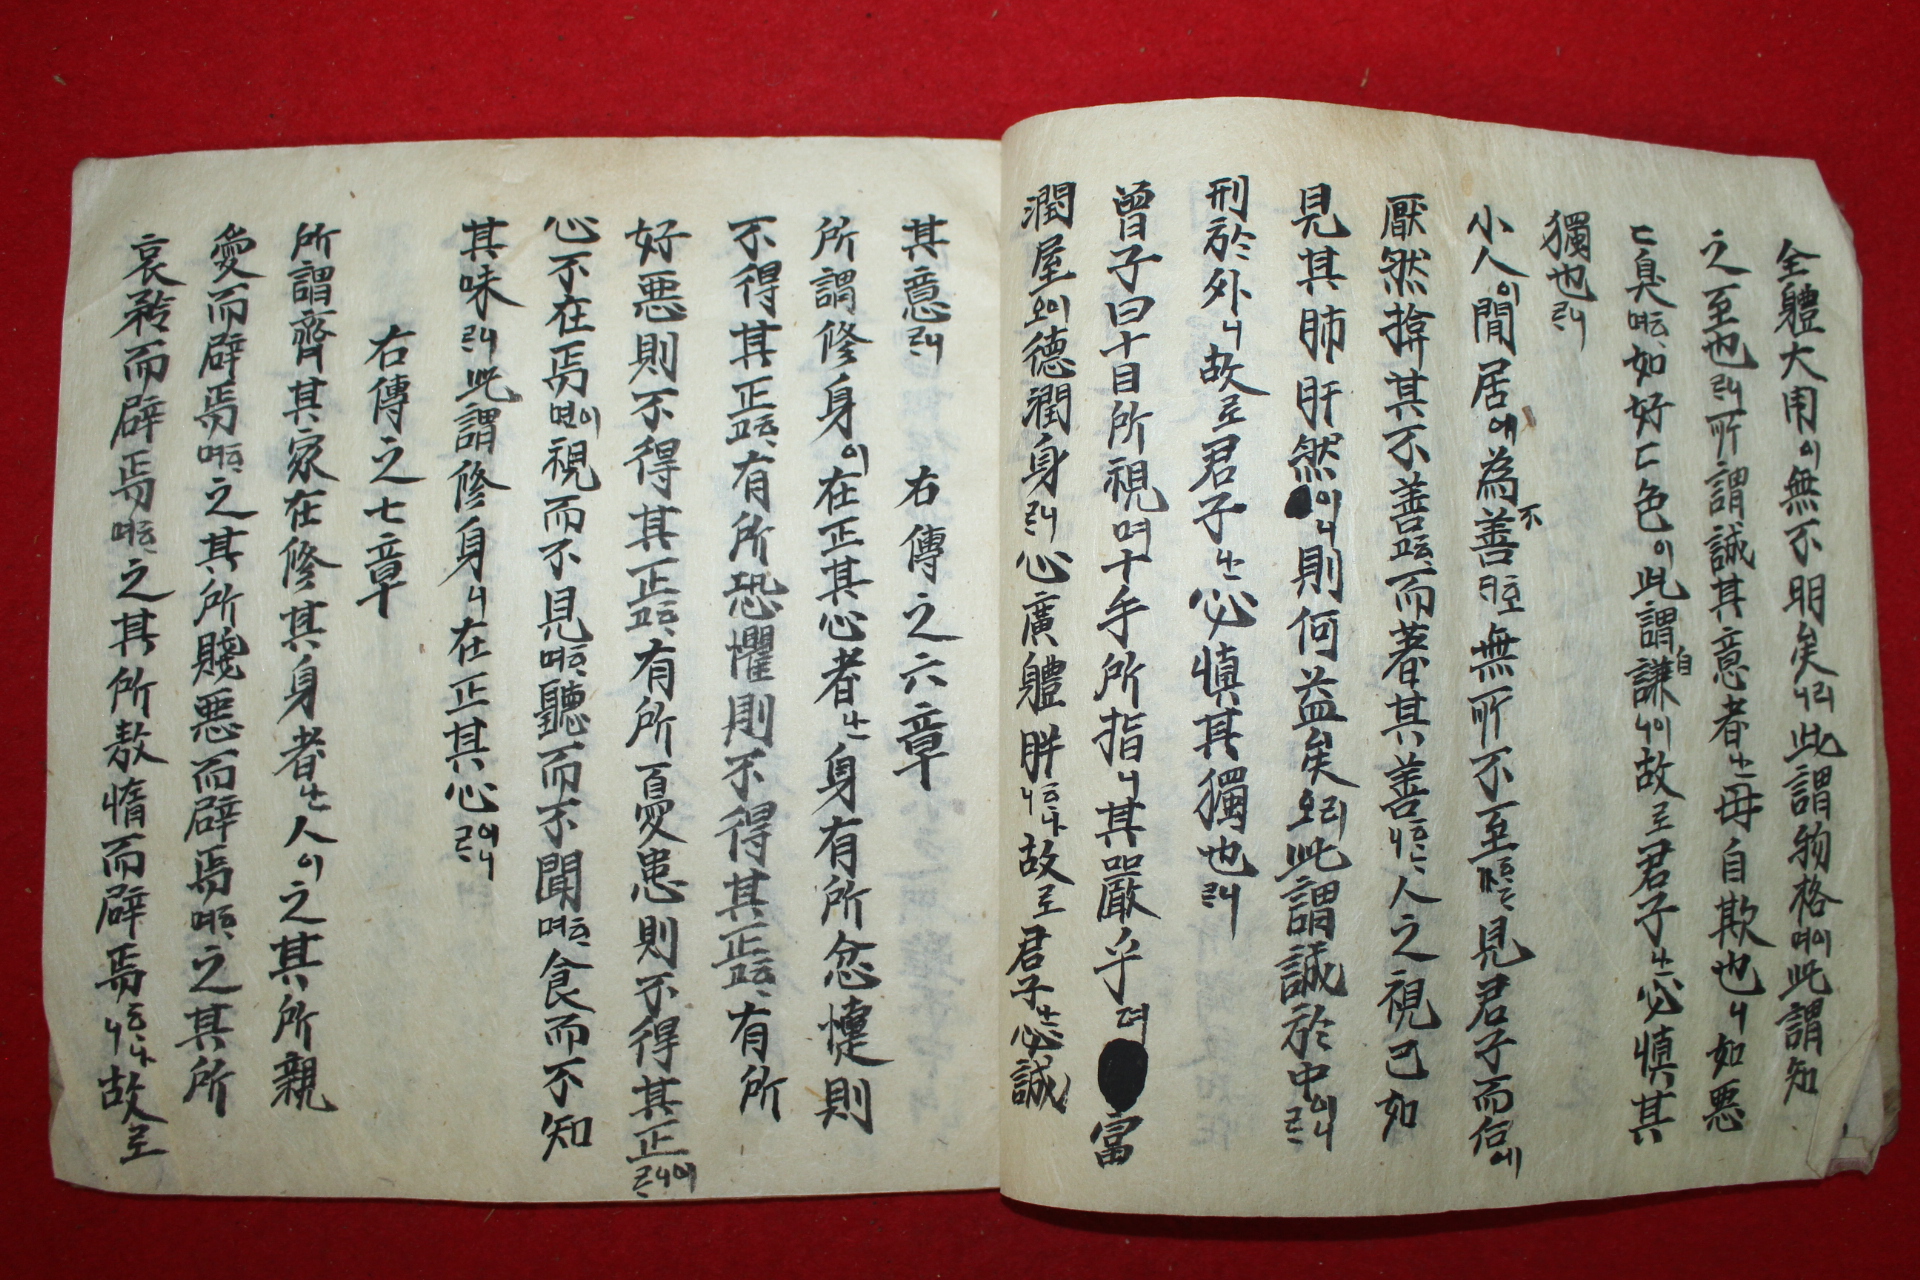 全體大用이無不明矣니라此謂物格며이此謂知
之至也라니所謂誠其意者난毋自欺也니如惡
匸臭며如好匸色이此謂自謙니이故로君子난必慎其
獨也라니
小人이閒居에為不善호無所不至見君子而后에
厭然揜其不善고而著其善니人之視己如
見其肺肝然이니則何益矣오리此謂誠於中이니
刑於外니故로君子난必慎其獨也라니
曾子曰十目所視며十手所指니其嚴乎뎌富
潤屋오이德潤身라니心廣體胖니故로君子난必誠
其意라니 右傳之六章
所謂修身이在正其心者난身有所忿懥則
不得其正고有所恐懼則不得其正고有所
好惡則不得其正고有所憂患則不得其正
心不在焉면이視而不見며聽而不聞며食而不知
其味라니此謂修身니在正其心
右傳之七章
所謂齊其家在修其身者난人이之其所親
愛而辟焉며之其所賤惡而辟焉며之其所
哀矜而辟焉며之其所敖惰而辟焉니故로